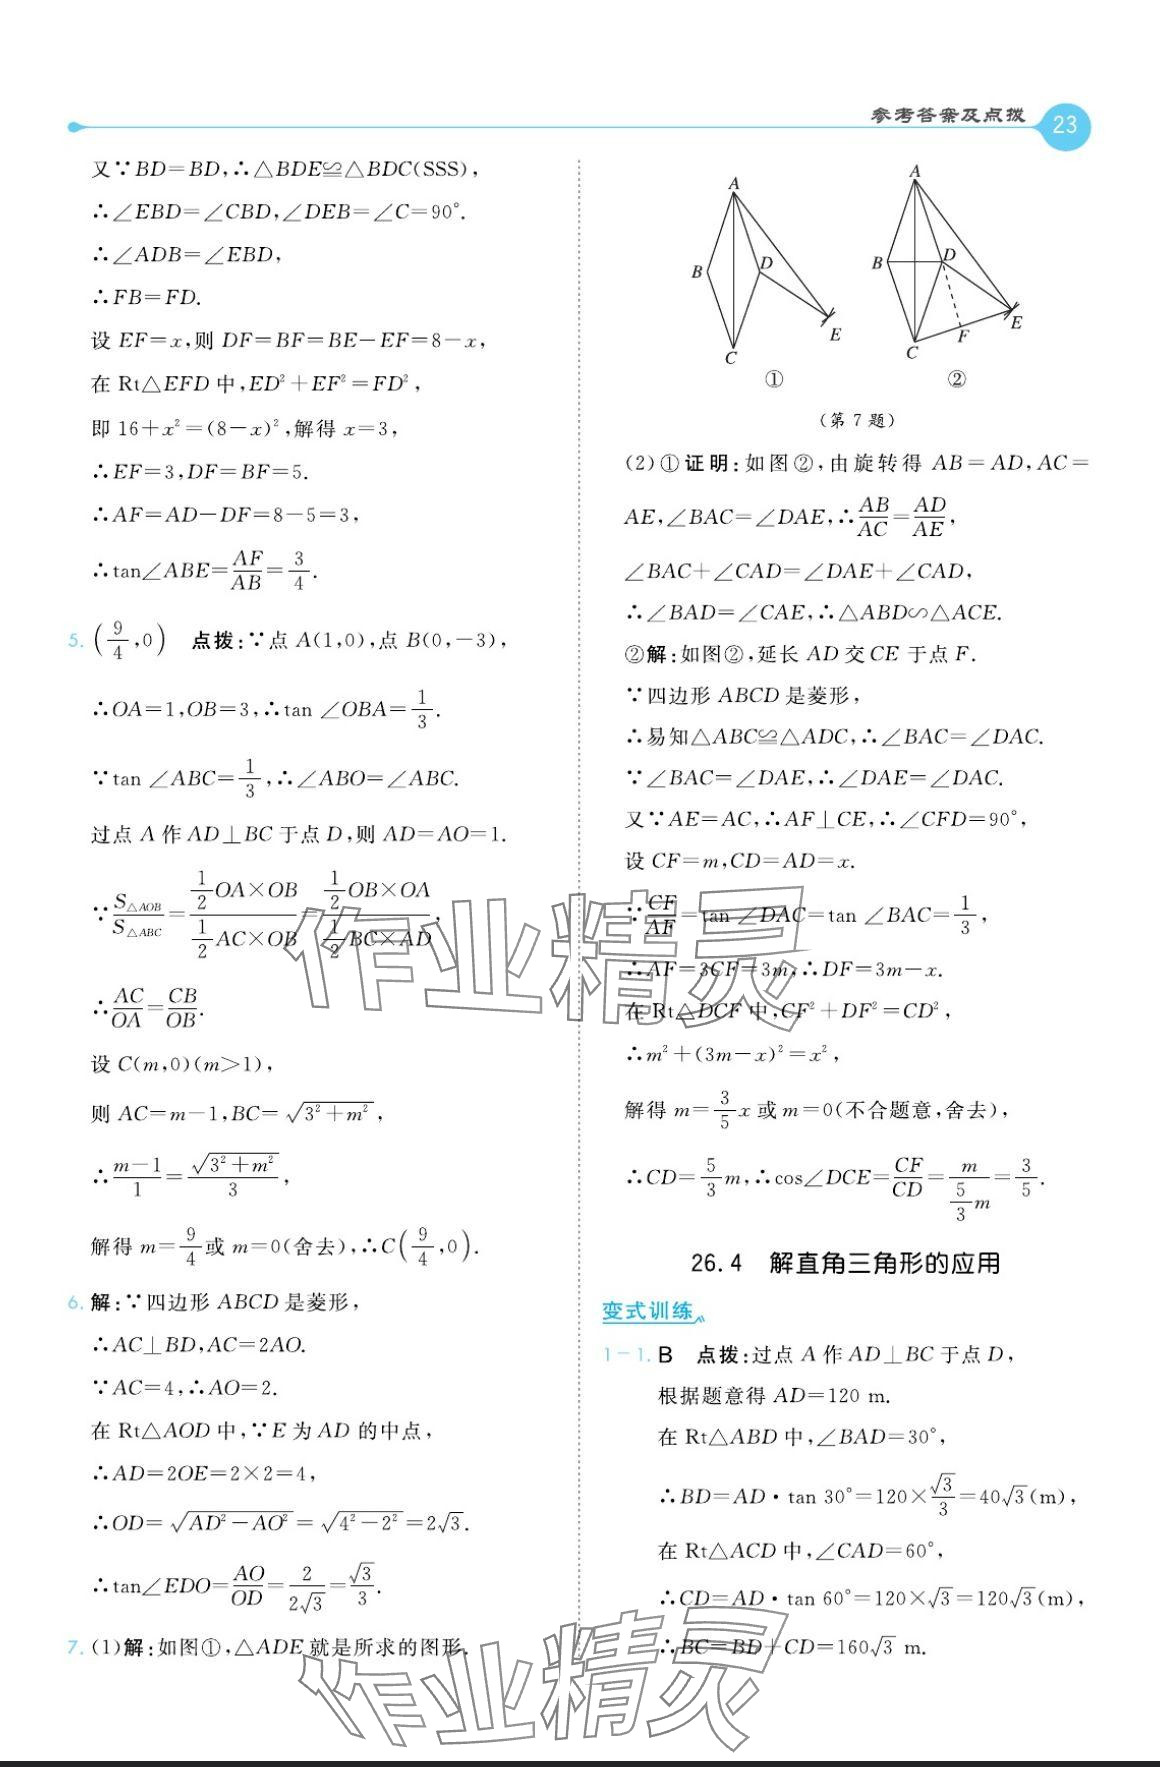 参考答案及点拨 23
又∵BD=BD,∴△BDE≌△BDC(SSS),
∴∠EBD=∠CBD,∠DEB=∠C=90°.
∴∠ADB=∠EBD,
∴FB=FD.
设 EF=x,则 DF=BF=BE-EF=8-x,
在 Rt△EFD 中,ED²+EF²=FD²,
即 16+x²=(8-x)²,解得 x=3,
∴EF=3,DF=BF=5.
∴AF=AD-DF=8-5=3,
∴tan∠ABE=AF/AB=3/4.
5. (9/4,0) 点拨:∵点 A(1,0),点 B(0,-3),
∴OA=1,OB=3,∴tan ∠OBA=1/3.
∵tan ∠ABC=1/3,∴∠ABO=∠ABC.
过点 A 作 AD⊥BC 于点 D,则 AD=AO=1.
∵S△AOB/S△ABC=(1/2 OA×OB)/(1/2 AC×OB)=(1/2 OB×OA)/(1/2 BC×AD),
∴AC/OA=CB/OB.
设 C(m,0)(m>1),
则 AC=m-1,BC=√(3²+m²),
∴(m-1)/1=√(3²+m²)/3,
解得 m=9/4或 m=0(舍去),∴C(9/4,0).
6. 解:∵四边形 ABCD 是菱形,
∴AC⊥BD,AC=2AO.
∵AC=4,∴AO=2.
在 Rt△AOD 中,∵E 为 AD 的中点,
∴AD=2OE=2×2=4,
∴OD=√(AD²-AO²)=√(4²-2²)=2√3.
∴tan∠EDO=AO/OD=2/(2√3)=√3/3.
7. (1)解:如图①,△ADE 就是所求的图形.
A
B
D
E
C
①
A
B
D
E
F
C
②
(第 7 题)
(2)①证明:如图②,由旋转得 AB=AD,AC=
AE,∠BAC=∠DAE,∴AB/AC=AD/AE,
∠BAC+∠CAD=∠DAE+∠CAD,
∴∠BAD=∠CAE,∴△ABD∽△ACE.
②解:如图②,延长 AD 交 CE 于点 F.
∵四边形 ABCD 是菱形,
∴易知△ABC≌△ADC,∴∠BAC=∠DAC.
∵∠BAC=∠DAE,∴∠DAE=∠DAC.
又∵AE=AC,∴AF⊥CE,∴∠CFD=90°,
设 CF=m,CD=AD=x.
∵CF/AF=tan ∠DAC=tan ∠BAC=1/3,
∴AF=3CF=3m,∴DF=3m-x.
在 Rt△DCF 中,CF²+DF²=CD²,
∴m²+(3m-x)²=x²,
解得 m=3/5 x 或 m=0(不合题意,舍去),
∴CD=5/3 m,∴cos∠DCE=CF/CD=m/(5/3 m)=3/5.
26.4 解直角三角形的应用
变式训练
1-1. B 点拨:过点 A 作 AD⊥BC 于点 D,
根据题意得 AD=120 m.
在 Rt△ABD 中,∠BAD=30°,
∴BD=AD·tan 30°=120×√3/3=40√3(m),
在 Rt△ACD 中,∠CAD=60°,
∴CD=AD·tan 60°=120×√3=120√3(m),
∴BC=BD+CD=160√3 m.
作业精灵
作业精灵